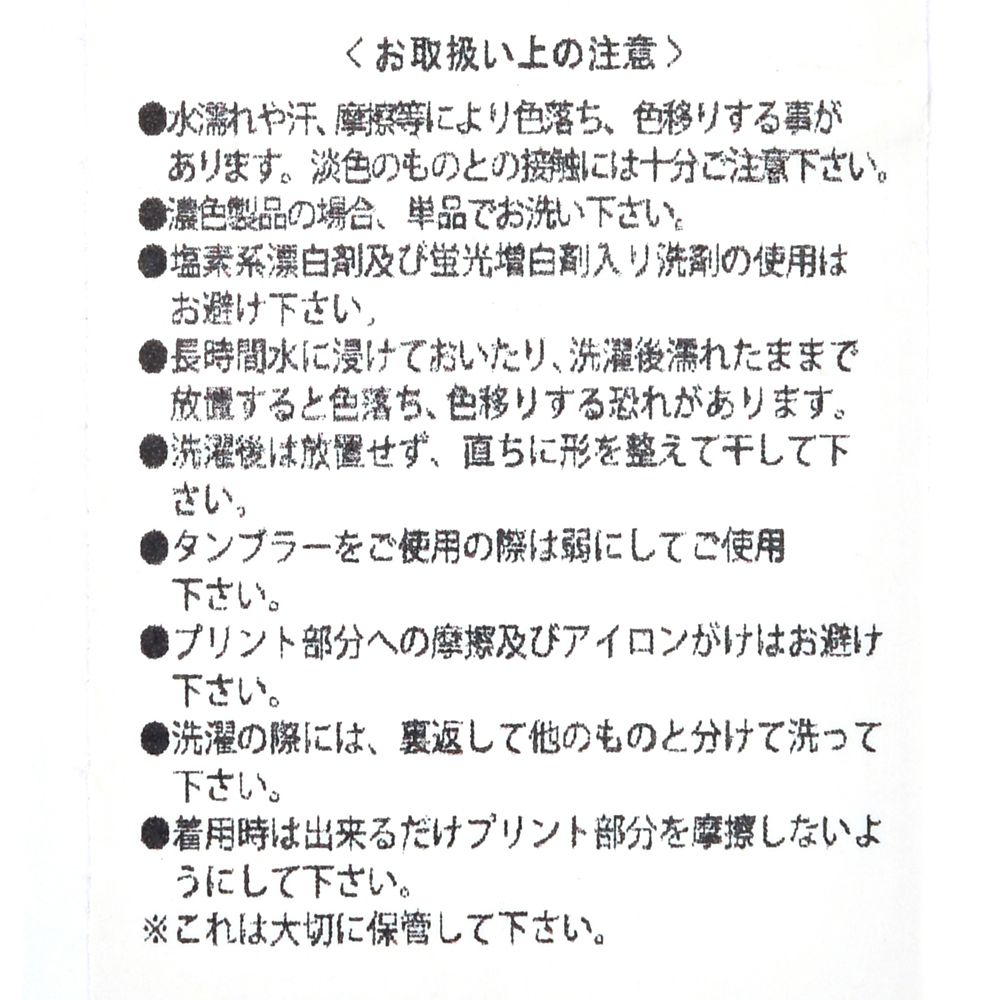 〈お取扱い上の注意〉
●水濡れや汗、摩擦等により色落ち、色移りする事が
あります。淡色のものとの接触には十分ご注意下さい。
●濃色製品の場合、単品でお洗い下さい。
●塩素系漂白剤及び蛍光増白剤入り洗剤の使用は
お避け下さい。
●長時間水に浸けておいたり、洗濯後濡れたままで
放置すると色落ち、色移りする恐れがあります。
●洗濯後は放置せず、直ちに形を整えて干して下
さい。
●タンブラーをご使用の際は弱にしてご使用
下さい。
●プリント部分への摩擦及びアイロンがけはお避け
下さい。
●洗濯の際には、裏返して他のものと分けて洗って
下さい。
●着用時は出来るだけプリント部分を摩擦しないよ
うにして下さい。
※これは大切に保管して下さい。